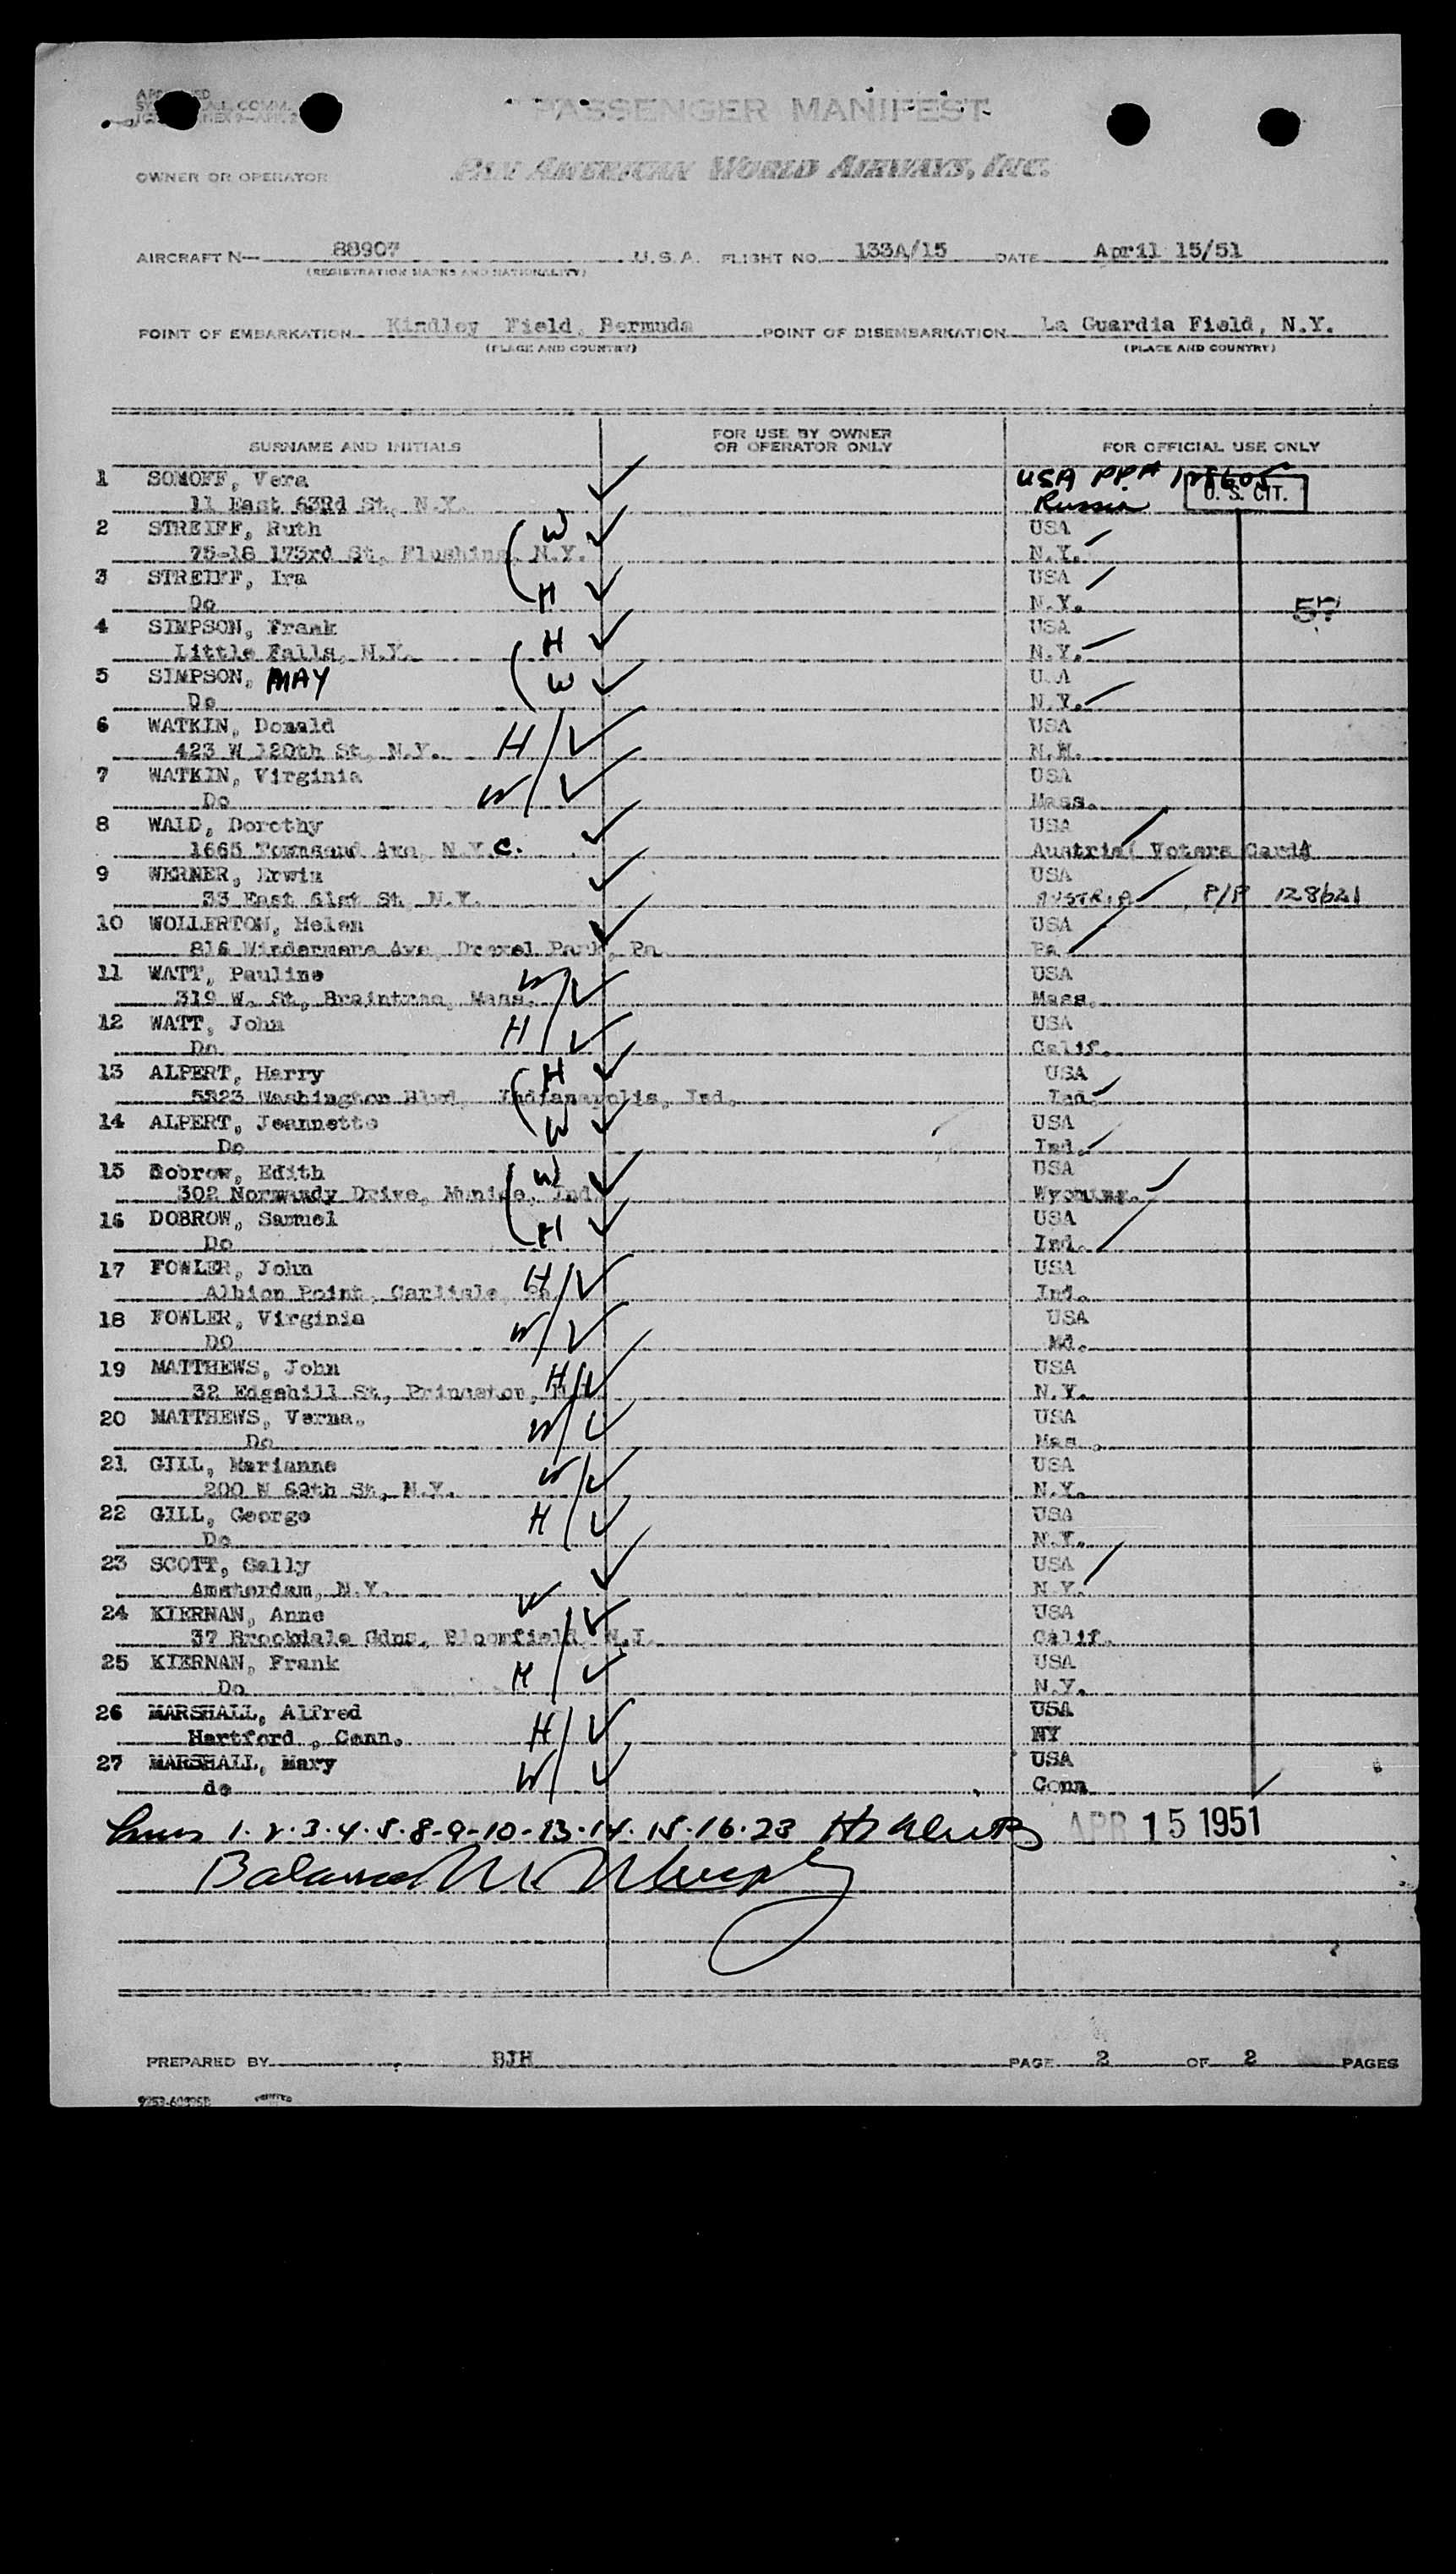 PASSENGER MANIFEST
OWNER OR OPERATOR PAN AMERICAN WORLD AIRWAYS, INC.
AIRCRAFT N— 88907 U.S.A. FLIGHT NO. 133A/15 DATE April 15/51
(REGISTRATION MARKS AND NATIONALITY)
POINT OF EMBARKATION Kindley Field, Bermuda POINT OF DISEMBARKATION La Guardia Field, N.Y.
(PLACE AND COUNTRY) (PLACE AND COUNTRY)
SURNAME AND INITIALS FOR USE BY OWNER OR OPERATOR ONLY FOR OFFICIAL USE ONLY
1 SOMOFF, Vera USA PP#
11 East 63Rd St, N.Y. Russia U. S. CIT.
2 STREIFF, Ruth W USA
75-18 173rd St, Flushing, N.Y. N.Y.
3 STREIFF, Ira USA
Do H N.Y. 57
4 SIMPSON, Frank H USA
Little Falls, N.Y. N.Y.
5 SIMPSON, MAY W U.A
Do N.Y.
6 WATKIN, Donald H USA
423 W 120th St, N.Y. N.H.
7 WATKIN, Virginia W USA
Do Mass.
8 WALD, Dorothy USA
1665 Townsend Ave, N.Y.C. Austria( Voters Card)
9 WERNER, Erwin USA
33 East 61st St, N.Y. AUSTRIA P/P 128621
10 WOLLERTON, Helen USA
816 Windermere Ave, Drexel Park, Pa. Pa
11 WATT, Pauline W USA
319 W. St, Braintree, Mass. Mass.
12 WATT, John H USA
Do Calif.
13 ALPERT, Harry H USA
5523 Washington Blvd, Indianapolis, Ind. Ind.
14 ALPERT, Jeannette W USA
Do Ind.
15 Dobrow, Edith W USA
302 Normandy Drive, Munice, Ind. Wyoming.
16 DOBROW, Samuel H USA
Do Ind.
17 FOWLER, John H USA
Albion Point, Carlisle, Pa. Ind.
18 FOWLER, Virginia W USA
DO Md.
19 MATTHEWS, John H USA
32 Edgehill St, Princeton, N.Y.
20 MATTHEWS, Verna. W USA
Do Mas.
21 GILL, Marianne W USA
200 W 69th St, N.Y. N.Y.
22 GILL, George H USA
Do N.Y.
23 SCOTT, Sally USA
Amsterdam, N.Y. N.Y.
24 KIERNAN, Anne W USA
37 Brookdale Gdns, Bloomfield, N.J. Calif.
25 KIERNAN, Frank H USA
Do N.Y.
26 MARSHALL, Alfred H USA
Hartford , Conn. NY
27 MARSHALL, Mary W USA
do Conn
1.2.3.4.5.8-9-10-13.14.15.16.23 APR 15 1951
Balance Murphy
PREPARED BY BJH PAGE 2 OF 2 PAGES